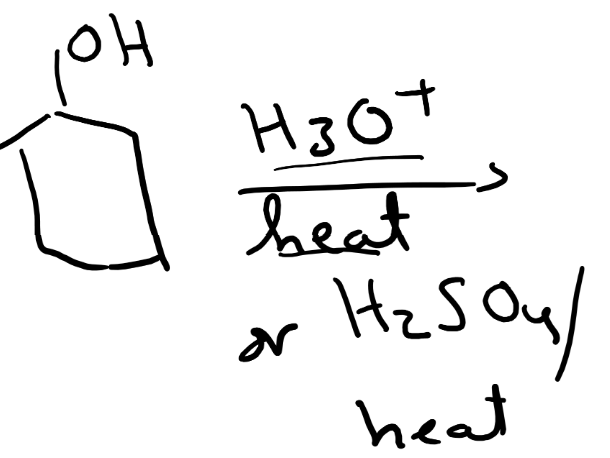 OH
H3O+
heat
or H2SO4/
heat